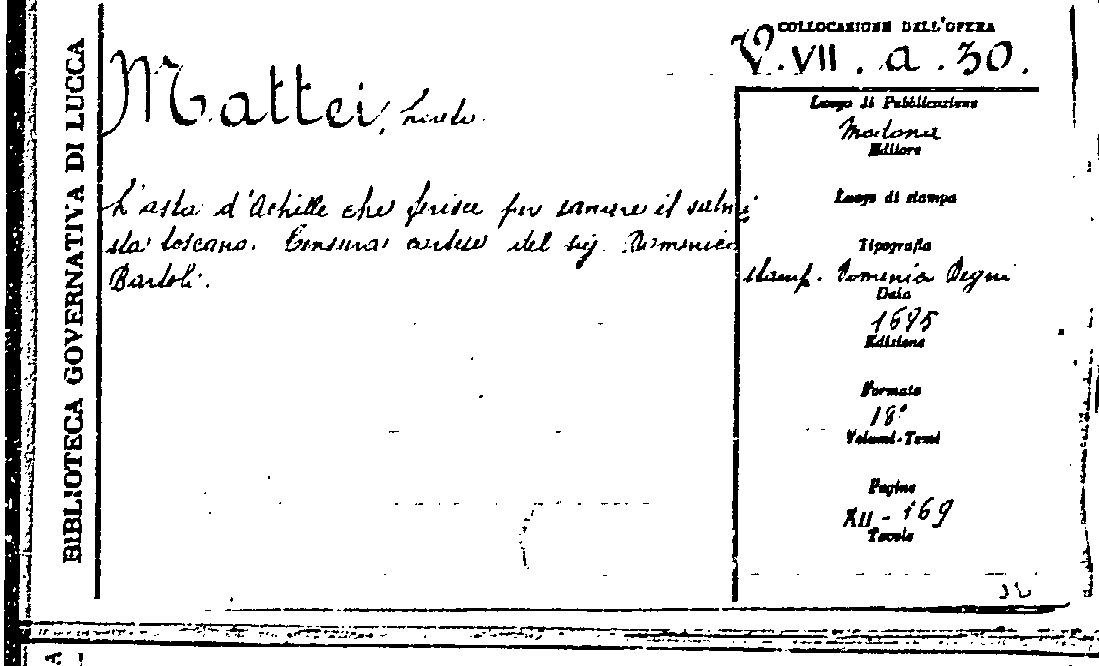 BIBLIOTECA GOVERNATIVA DI LUCCA
COLLOCAZIONE DELL'OPERA
V.VII.a.30.
Mattei,
L'asta d'Achille che ferisce per sanare il salmi
sta toscano. Censura cortese del sig. Domenico
Bartoli.
Luogo di Pubblicazione
Modona
Editore
Luogo di stampa
Tipografia
stamp. Domenico Degni
Data
1695
Edizione
Formato
18°
Volumi-Tomi
Pagine
XII - 169
Tavole